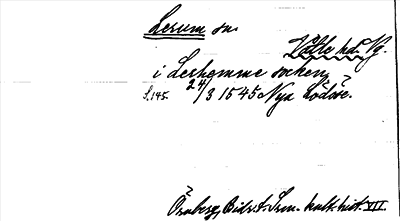 Lerum sn.
Vättle hd. Vg.
i Lerhemme socken,
S.145. 24/3 1545 Nya Lödöse.
Örnberg, Bidr. t. Sv. kult. hist. VII